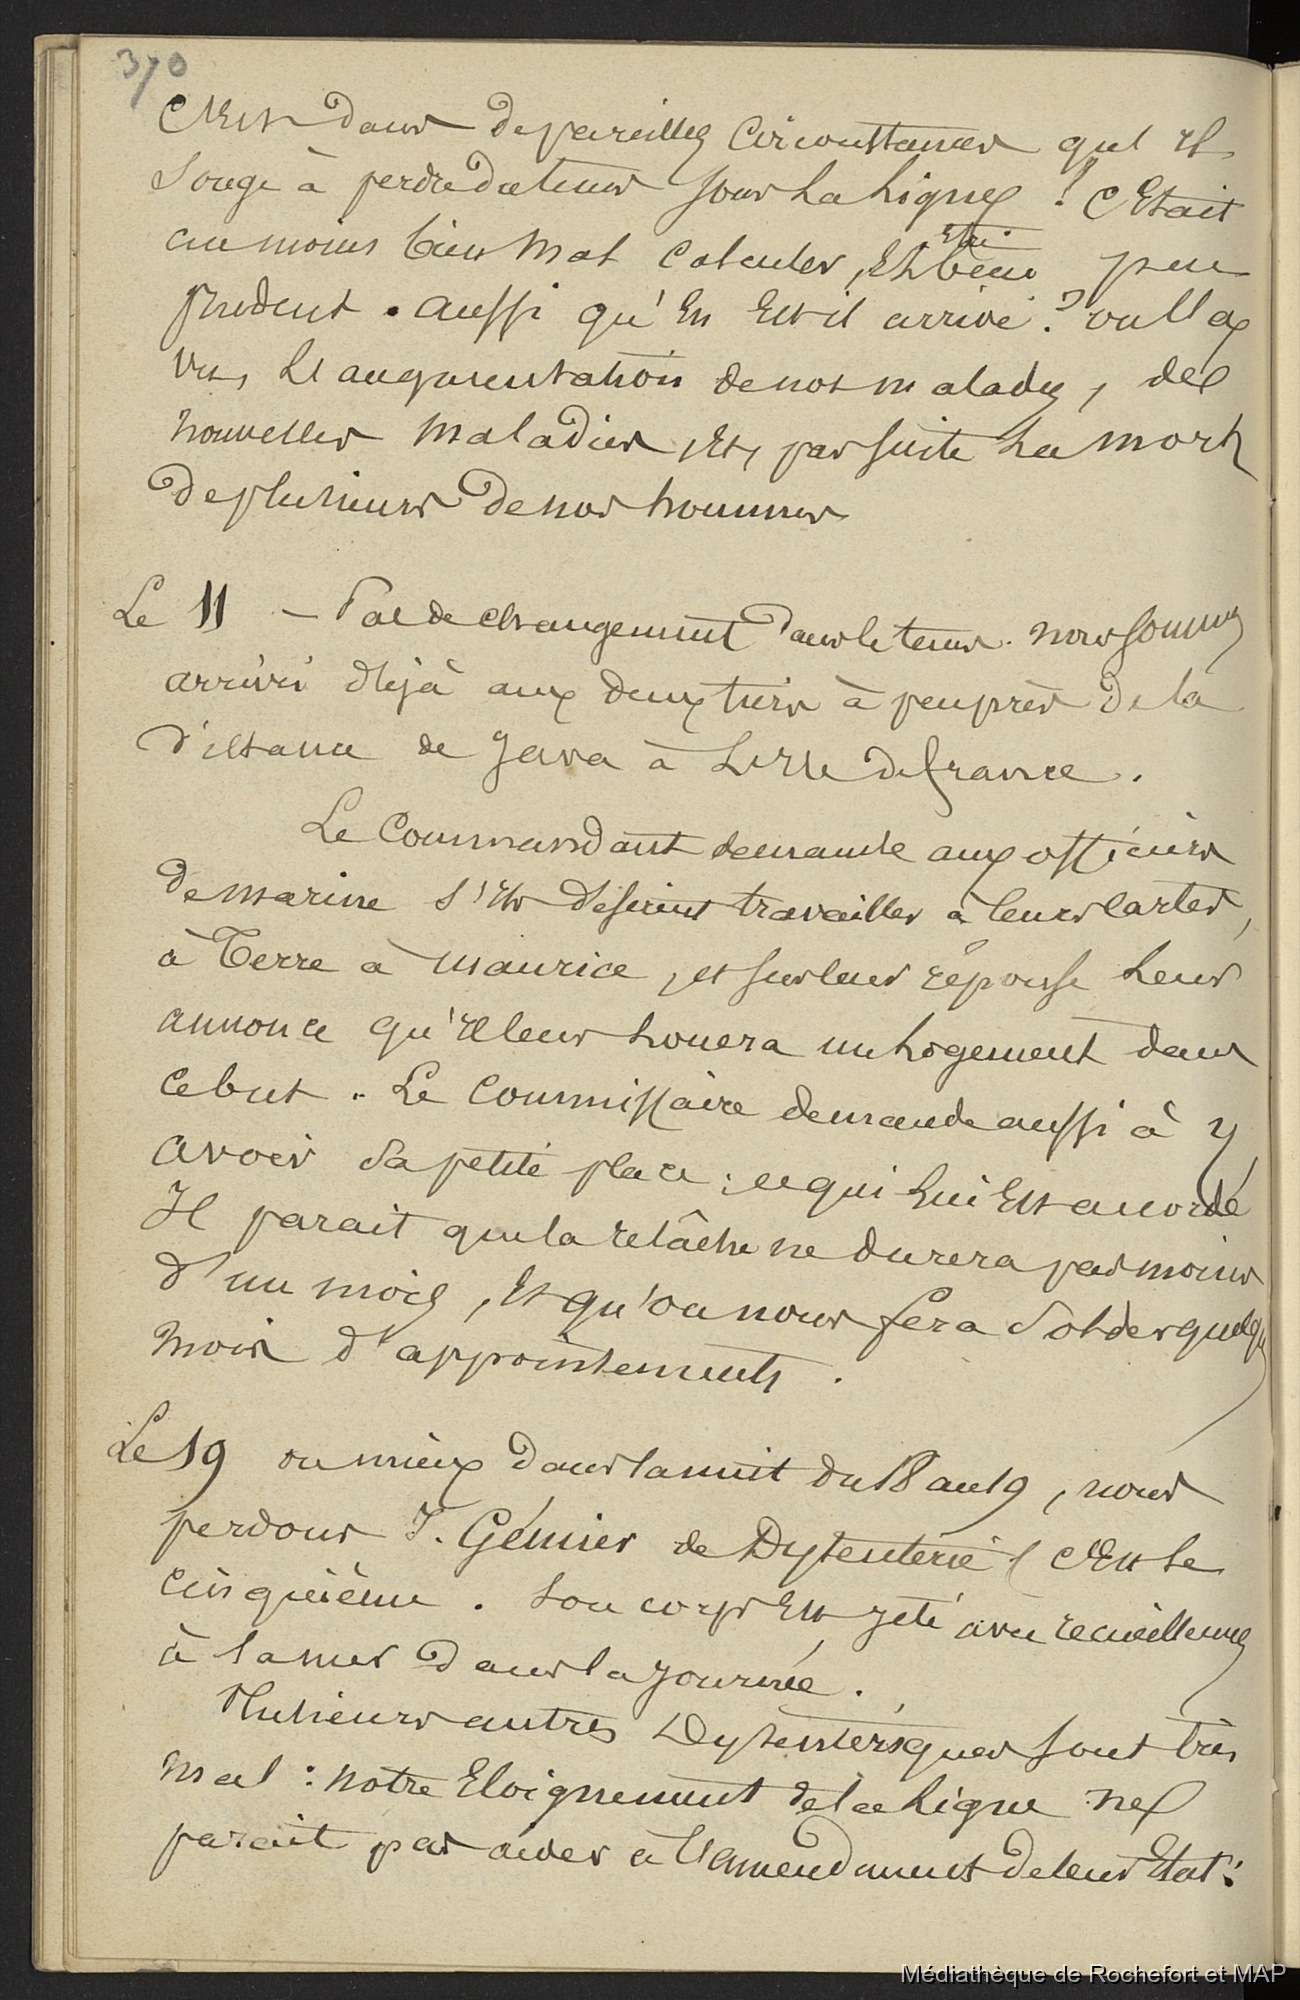 370
C'Est dans de pareilles Circonstances que Il
Songe à perdre du tems sous la Ligne ! C'Etait
au moins bien mal Calculer, Et bien peu
Etre
prudent. aussi qu'En Est-il arrivé ? on l'a
vu, L'augmentation de nos malades, de
nouvelles maladies, Et, par suite La mort
de plusieurs de nos hommes
Le 11 — Pas de changement dans le tems. nous sommes
arrivés déjà aux deux tiers à peu près de la
distance de Java à L'Isle de france.
Le Commandant demande aux officiers
de marine s'Ils désirent travailler à leurs Cartes,
à Terre à Maurice, et sur leur réponse Leur
annonce qu'Il leur Louera un Logement dans
ce but. Le Commissaire demande aussi à y
avoir sa petite place ; ce qui Lui Est accordé
Il parait que la relâche ne durera pas moins
d'un mois, Et qu'on nous fera Solder quelques
mois d'appointements.
Le 19 ou mieux dans la nuit du 18 au 19, nous
perdons J. Gémier de Dyssenterie ( C'Est Le
Cinquième. Son corps Est jeté avec recueillement
à la mer dans la journée.
Plusieurs autres Dyssentériques sont très
mal : notre Eloignement de la Ligne ne
parait pas aider à l'amendement de leur Etat :
Médiathèque de Rochefort et MAP